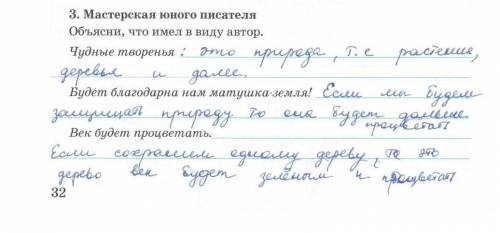 3. Мастерская юного писателя
Объясни, что имел в виду автор.
Чудные творенья : это природа, т.е растения,
деревья и далее.
Будет благодарна нам матушка-земля! Если мы будем
защищать природу то она будет дольше
процветать
Век будет процветать.
Если сохраним одному дереву, то это
дерево век будет зелёным и процветать
32